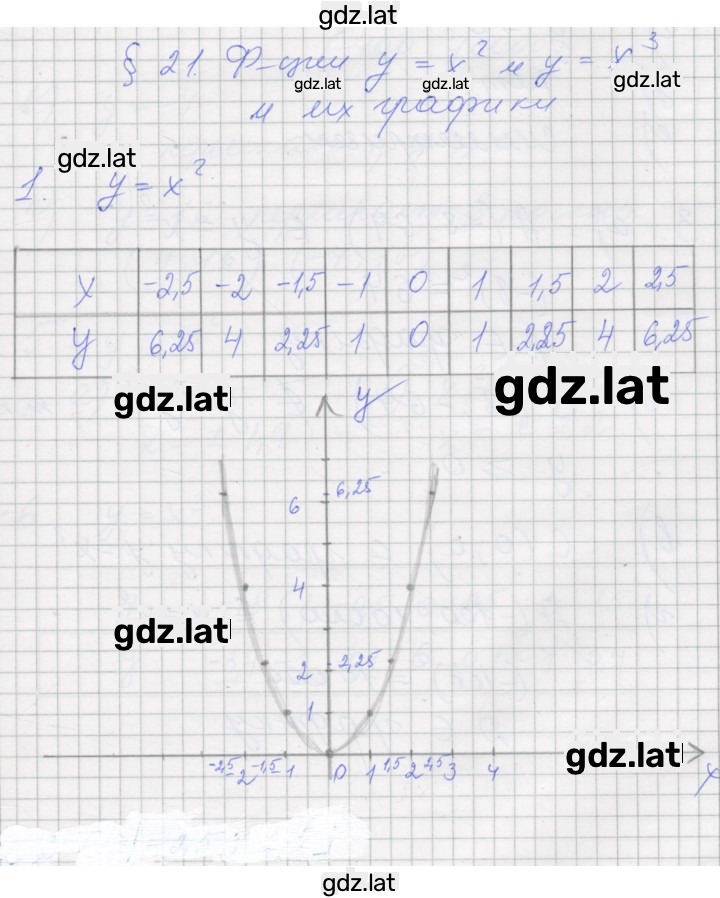 gdz.lat
§ 21. Ф-ции y = x² и y = x³
gdz.lat gdz.lat gdz.lat
и их графики
gdz.lat
1. y = x²
x -2,5 -2 -1,5 -1 0 1 1,5 2 2,5
y 6,25 4 2,25 1 0 1 2,25 4 6,25
gdz.lat gdz.lat
y
6 6,25
4
gdz.lat
2 2,25
1
gdz.lat
-2,5 -2 -1,5 -1 0 1 1,5 2 2,5 3 4 x
gdz.lat